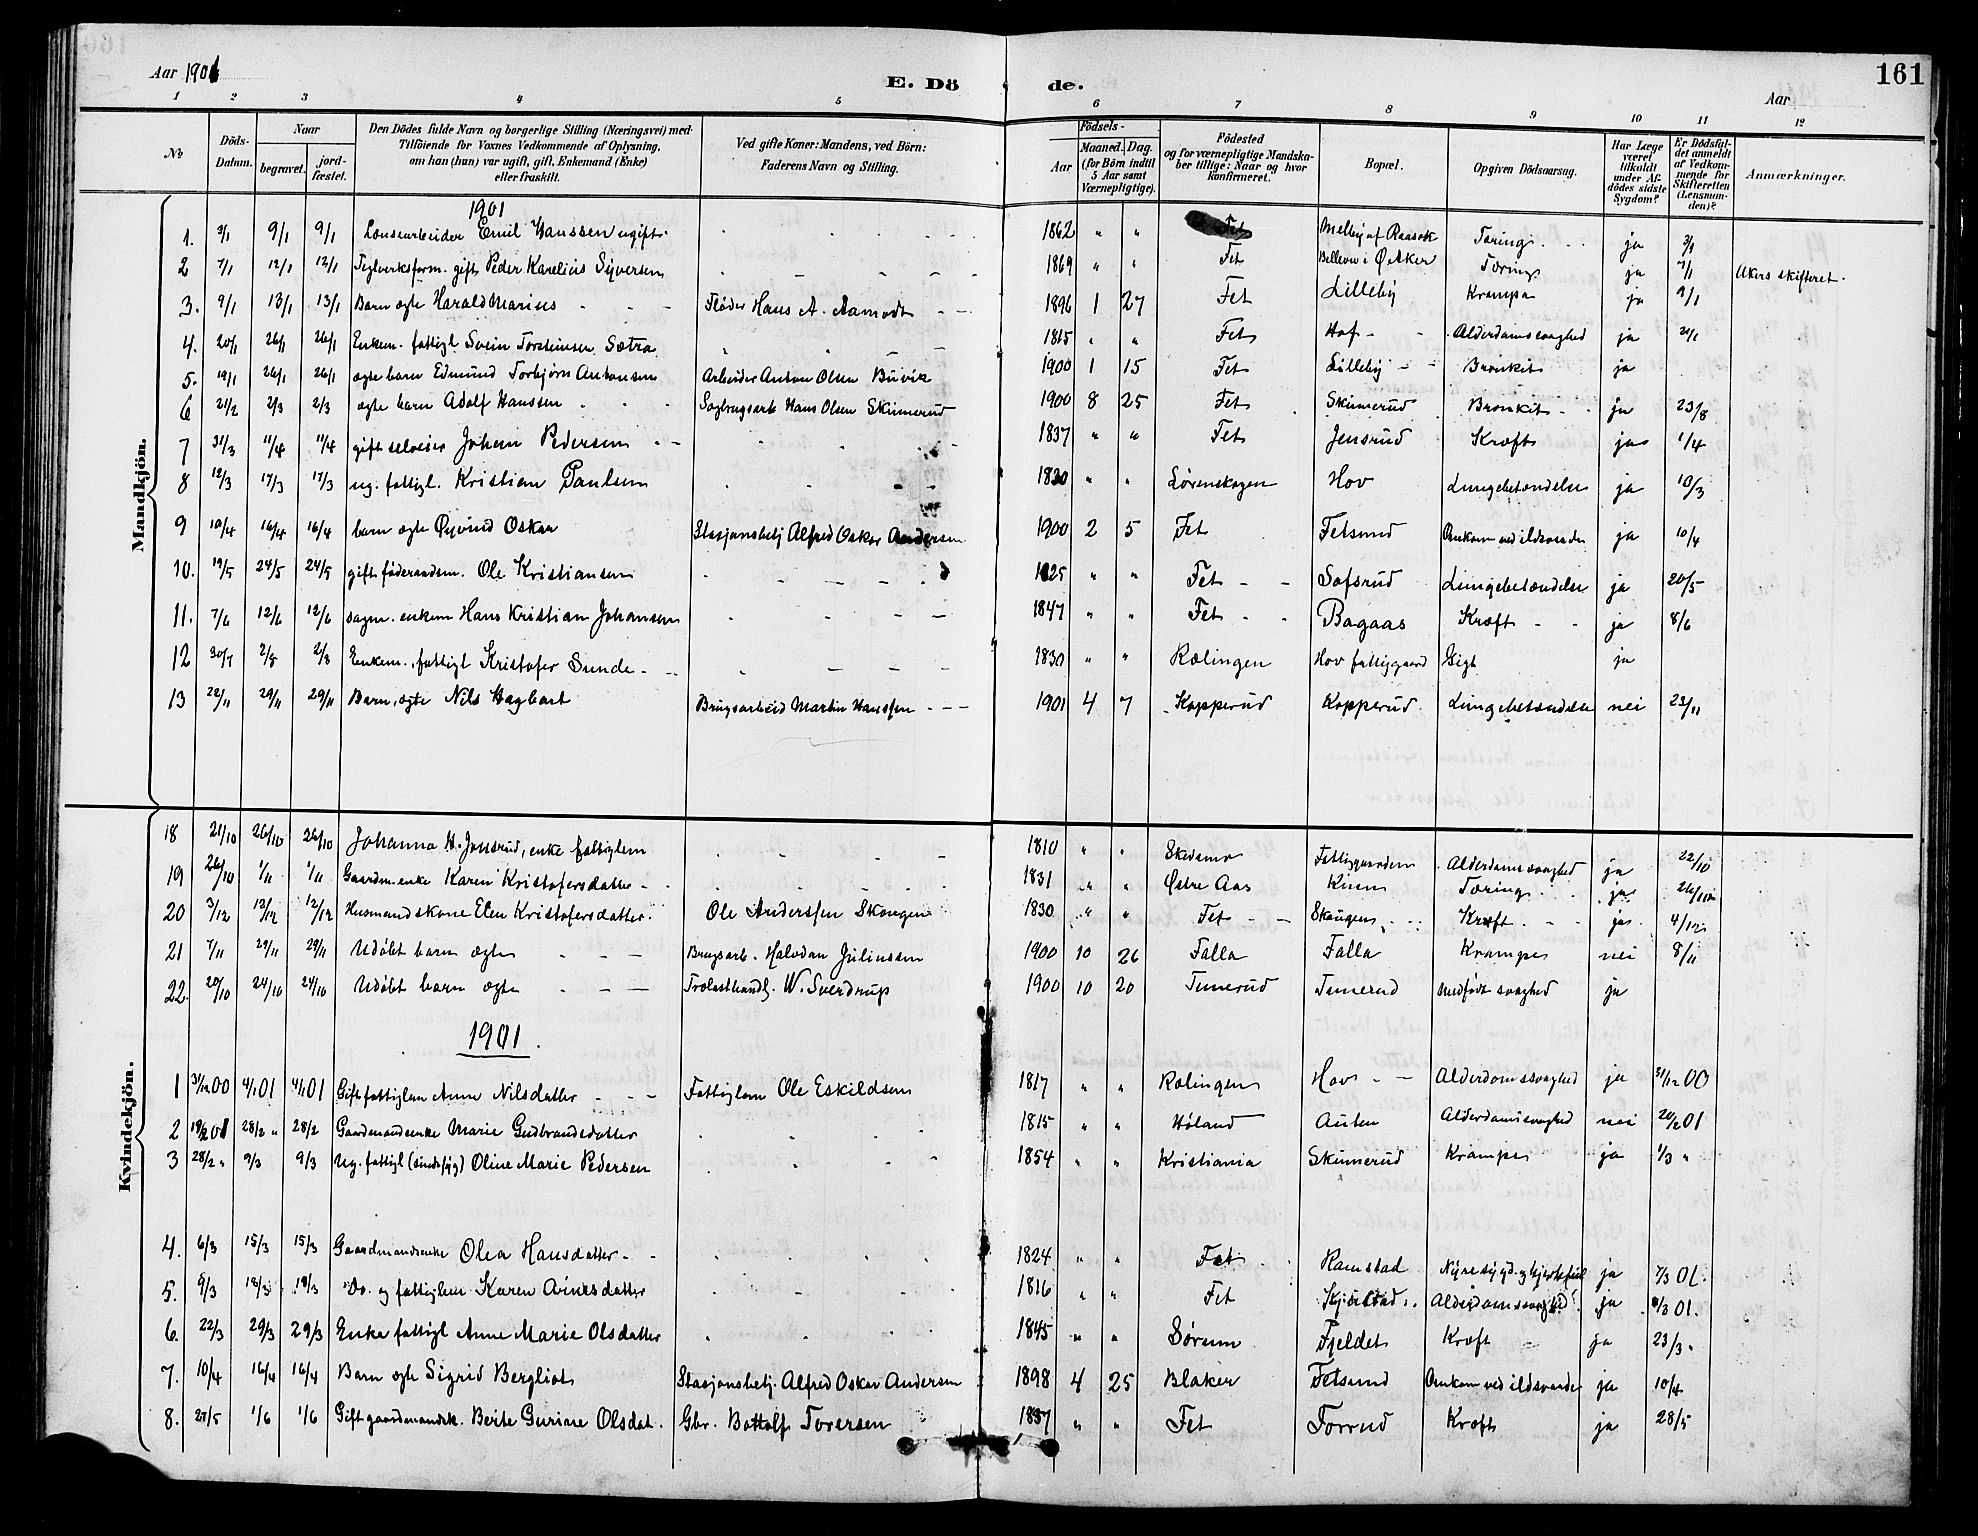 161
Aar 1901
E. Dö de.
Aar
1 2 3 4 5 6 7 8 9 10 11 12
No
Döds-Datum.
Naar
begravet.
jord-fæstet.
Den Dödes fulde Navn og borgerlige Stilling (Næringsvei) med
Tilföiende for Voxnes Vedkommende af Oplysning,
om han (hun) var ugift, gift, Enkemand (Enke)
eller fraskilt.
Ved gifte Koner: Mandens, ved Börn:
Faderens Navn og Stilling.
Födsels-
Aar
Maaned. Dag.
(for Börn indtil
5 Aar samt
Værnepligtige).
Födested
og for værnepligtige Mandska-
ber tillige: Naar og hvor
konfirmeret.
Bopæl.
Opgiven Dödsaarsag.
Har Læge
været
tilkaldt
under Af-
dödes sidste
Sygdom?
Er Dödsfal-
det anmeldt
af Vedkom-
mende for
Skifteretten
(Lensman-
den)?
Anmærkninger.
Mandkjön.
1901
1. 2/1 9/1 9/1 Lønsearbeider Emil Hanssen ugift 1862 " " Fet Melby af Raasok Tæring ja 3/1
2 7/1 12/1 12/1 Teglverksform. gift Peder Karelius Syversen 1869 " " Fet Bellevue i Ø. Aker Tæring ja 7/1 Akers skifteret.
3. 9/1 13/1 13/1 Barn ægte Harald Marius Fløder Hans A. Aamodt 1896 1 27 Fet Lilleby Krampe ja 9/1
4. 20/1 26/1 26/1 Enkem. fattigl. Svein Torsteinsen Sætra 1815 " " Fet Hof Alderdomssvaghed ja 21/1
5. 19/1 26/1 26/1 ægte barn Edmund Torbjørn Antonsen Arbeider Anton Olsen Buvik 1900 1 15 Fet Lilleby Bronkit ja
6 21/2 2/3 2/3 ægte barn Adolf Hanssen Sagbrugsarb. Hans Olsen Skinnerud 1900 8 25 Fet Skinnerud Bronkit ja 23/8
7 31/3 11/4 11/4 gift selveier Johan Pedersen 1837 " " Fet Jensrud Kræft ja 1/4
8 12/3 17/3 17/3 ug. fattigl. Kristian Paulsen 1830 " " Lørenskogen Hov Lungebetændelse ja 10/3
9 10/4 16/4 16/4 barn ægte Øyvind Oskar Stasjonsbetj Alfred Oskar Andersen 1900 2 5 Fet Fetsund Omkom ved ildsvaade ja 10/4
10. 19/5 24/5 24/5 gift føderaadsm. Ole Kristiansen 1825 " " Fet Sofsrud Lungebetændelse ja 20/5
11. 7/6 12/6 12/6 sagm. enkem Hans Kristian Johansen 1847 " " Fet Bagaas Kræft ja 8/6
12 30/7 2/8 2/8 Enkem. fattigl Kristofer Sunde 1830 " " Rælingen Hov fattiggaard Gigt ja
13 22/11 29/11 29/11 Barn, ægte Nils Hagbart Brugsarbeid Martin Hanssen 1901 4 7 Kopperud Kopperud Lungebetændelse nei 23/11
Kvindekjön.
18 21/10 26/10 26/10 Johanna H. Jonsrud, enke fattiglem 1810 " " Skedsmo Fattiggaarden Alderdomssvaghed ja 22/10
19 26/10 1/11 1/11 Gaardm.enke Karen Kristofersdatter 1831 " " Østre Aas Kinn Tæring ja 26/10
20 3/12 12/12 12/12 Husmandskone Elen Kristofersdatter. Ole Anderssen Skougen 1830 " " Fet Skougen Kræft ja 4/12
21 7/11 29/11 29/11 Udøbt barn ægte Brugsarb. Halvdan Juliussen 1900 10 26 Falla Falla Krampe nei 8/11
22. 20/10 24/10 24/10 Udøbt barn ægte Trælasthandl. W. Sverdrup 1900 10 20 Tienerud Tienerud medfødt svaghed ja
1901.
1 31/12 00 4/1 01 4/1 01 Gift fattiglem Anne Nilsdatter Fattiglem Ole Eskildsen 1817 " " Rælingen Hov Alderdomssvaghed ja 31/12 00
2 19/2 01 28/2 " 28/2 Gaardmandsenke Marie Gudbrandsdatter 1815 " " Høland Auten Alderdomssvaghed nei 20/2 01
3 28/2 " 9/3 9/3 Ug. fattigl (sindssyg) Oline Marie Pedersen 1854 " " Kristiania Skinnerud Krampe ja 1/3 "
4. 6/3 15/3 15/3 Gaardmandsenke Olea Hansdatter 1824 " " Fet Ramstad Nyresygd. og hjertefeil ja 7/3 01.
5. 9/3 18/3 18/3 Do. og fattiglem Karen Arnesdatter 1816 " " Fet Kjølstad Alderdomssvaghed ja 9/3 01.
6. 22/3 29/3 29/3 Enke fattigl Anne Marie Olsdatter 1845 " " Sørum Fjeldet Kræft ja 23/3 "
7. 10/4 16/4 16/4 Barn ægte Sigrid Bergliot Stasjonsbetj. Alfred Oskar Andersen 1898 4 25 Blaker Fetsund Omkom ved ildsvaade ja 10/4
8. 27/5 1/6 1/6 Gift gaardmandsk. Berte Gurine Olsdat. Gbr. Bottolf Toresen 1837 " " Fet Forrud Kræft ja 28/5